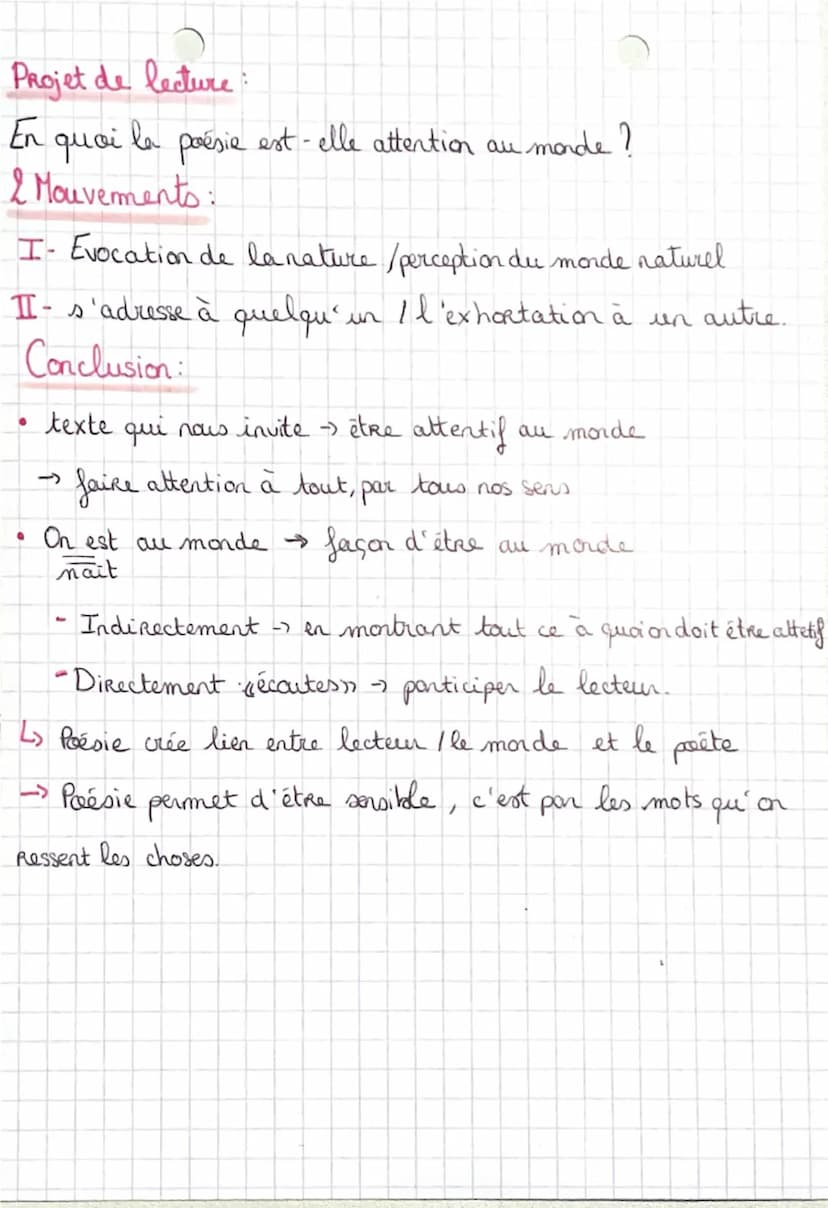 Projet de lecture :
En quoi la poésie est-elle attention au monde ?
2 Mouvements :
I- Evocation de la nature / perception du monde naturel
II- s'adresse à quelqu'un / l'exhortation à un autre.
Conclusion :
• texte qui nous invite → être attentif au monde
→ faire attention à tout, par tous nos sens
• On est au monde → façon d'être au monde
nait
- Indirectement → en montrant tout ce à quoi on doit être attetif
- Directement "écoutes" → participer le lecteur.
↳ Poésie crée lien entre lecteur / le monde et le poète
→ Poésie permet d'être sensible, c'est par les mots qu'on
ressent les choses.